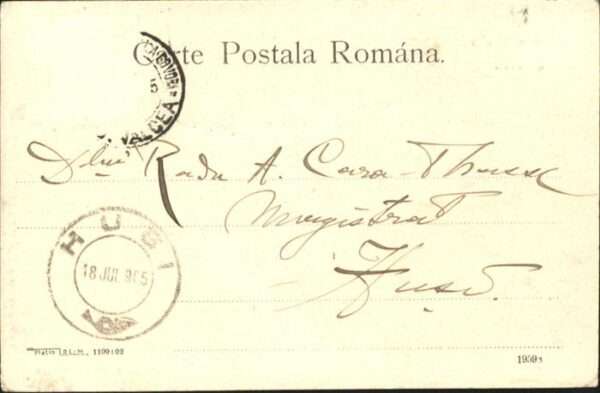 Carte Postala Română.
VALCEA
Dlui Radu A. Cara-Thass
Magistrat
Huși.
HUSI
18 JUL 905
19593